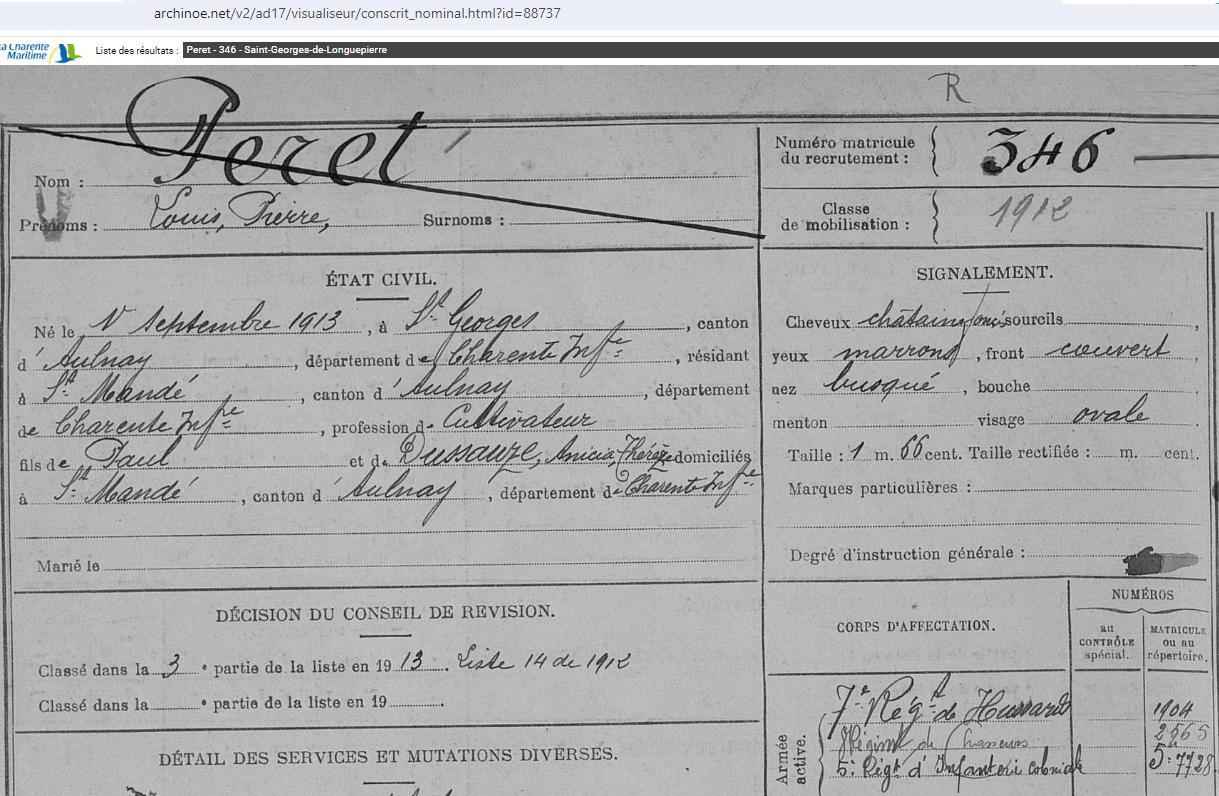 archinoe.net/v2/ad17/visualiseur/conscrit_nominal.html?id=88737
La Charente
Maritime
Liste des résultats : Peret - 346 - Saint-Georges-de-Longuepierre
R
Nom : Peret
Prénoms : Louis, Pierre, Surnoms :
Numéro matricule
du recrutement : 346
Classe
de mobilisation : 1912
ÉTAT CIVIL.
Né le 1er Septembre 1913, à St Georges, canton
d'Aulnay, département de Charente Infre, résidant
à St Mandé, canton d'Aulnay, département
de Charente Infre, profession de Cultivateur
fils de Paul et de Dussauze, Anicia, Thérèse domiciliés
à St Mandé, canton d'Aulnay, département de Charente Infre
Marié le
SIGNALEMENT.
Cheveux châtains foncés sourcils,
yeux marrons, front couvert,
nez busqué, bouche
menton visage ovale
Taille : 1 m. 66 cent. Taille rectifiée : m. cent.
Marques particulières :
Degré d'instruction générale :
DÉCISION DU CONSEIL DE REVISION.
Classé dans la 3e partie de la liste en 1913. Liste 14 de 1912
Classé dans la e partie de la liste en 19 .
DÉTAIL DES SERVICES ET MUTATIONS DIVERSES.
CORPS D'AFFECTATION.
NUMÉROS
au
CONTRÔLE
spécial.
MATRICULE
ou au
répertoire.
Armée
active.
7e Régt de Hussards 1904
Régiment de Chasseurs 2565
5e Régt d'Infanterie coloniale 5-7728